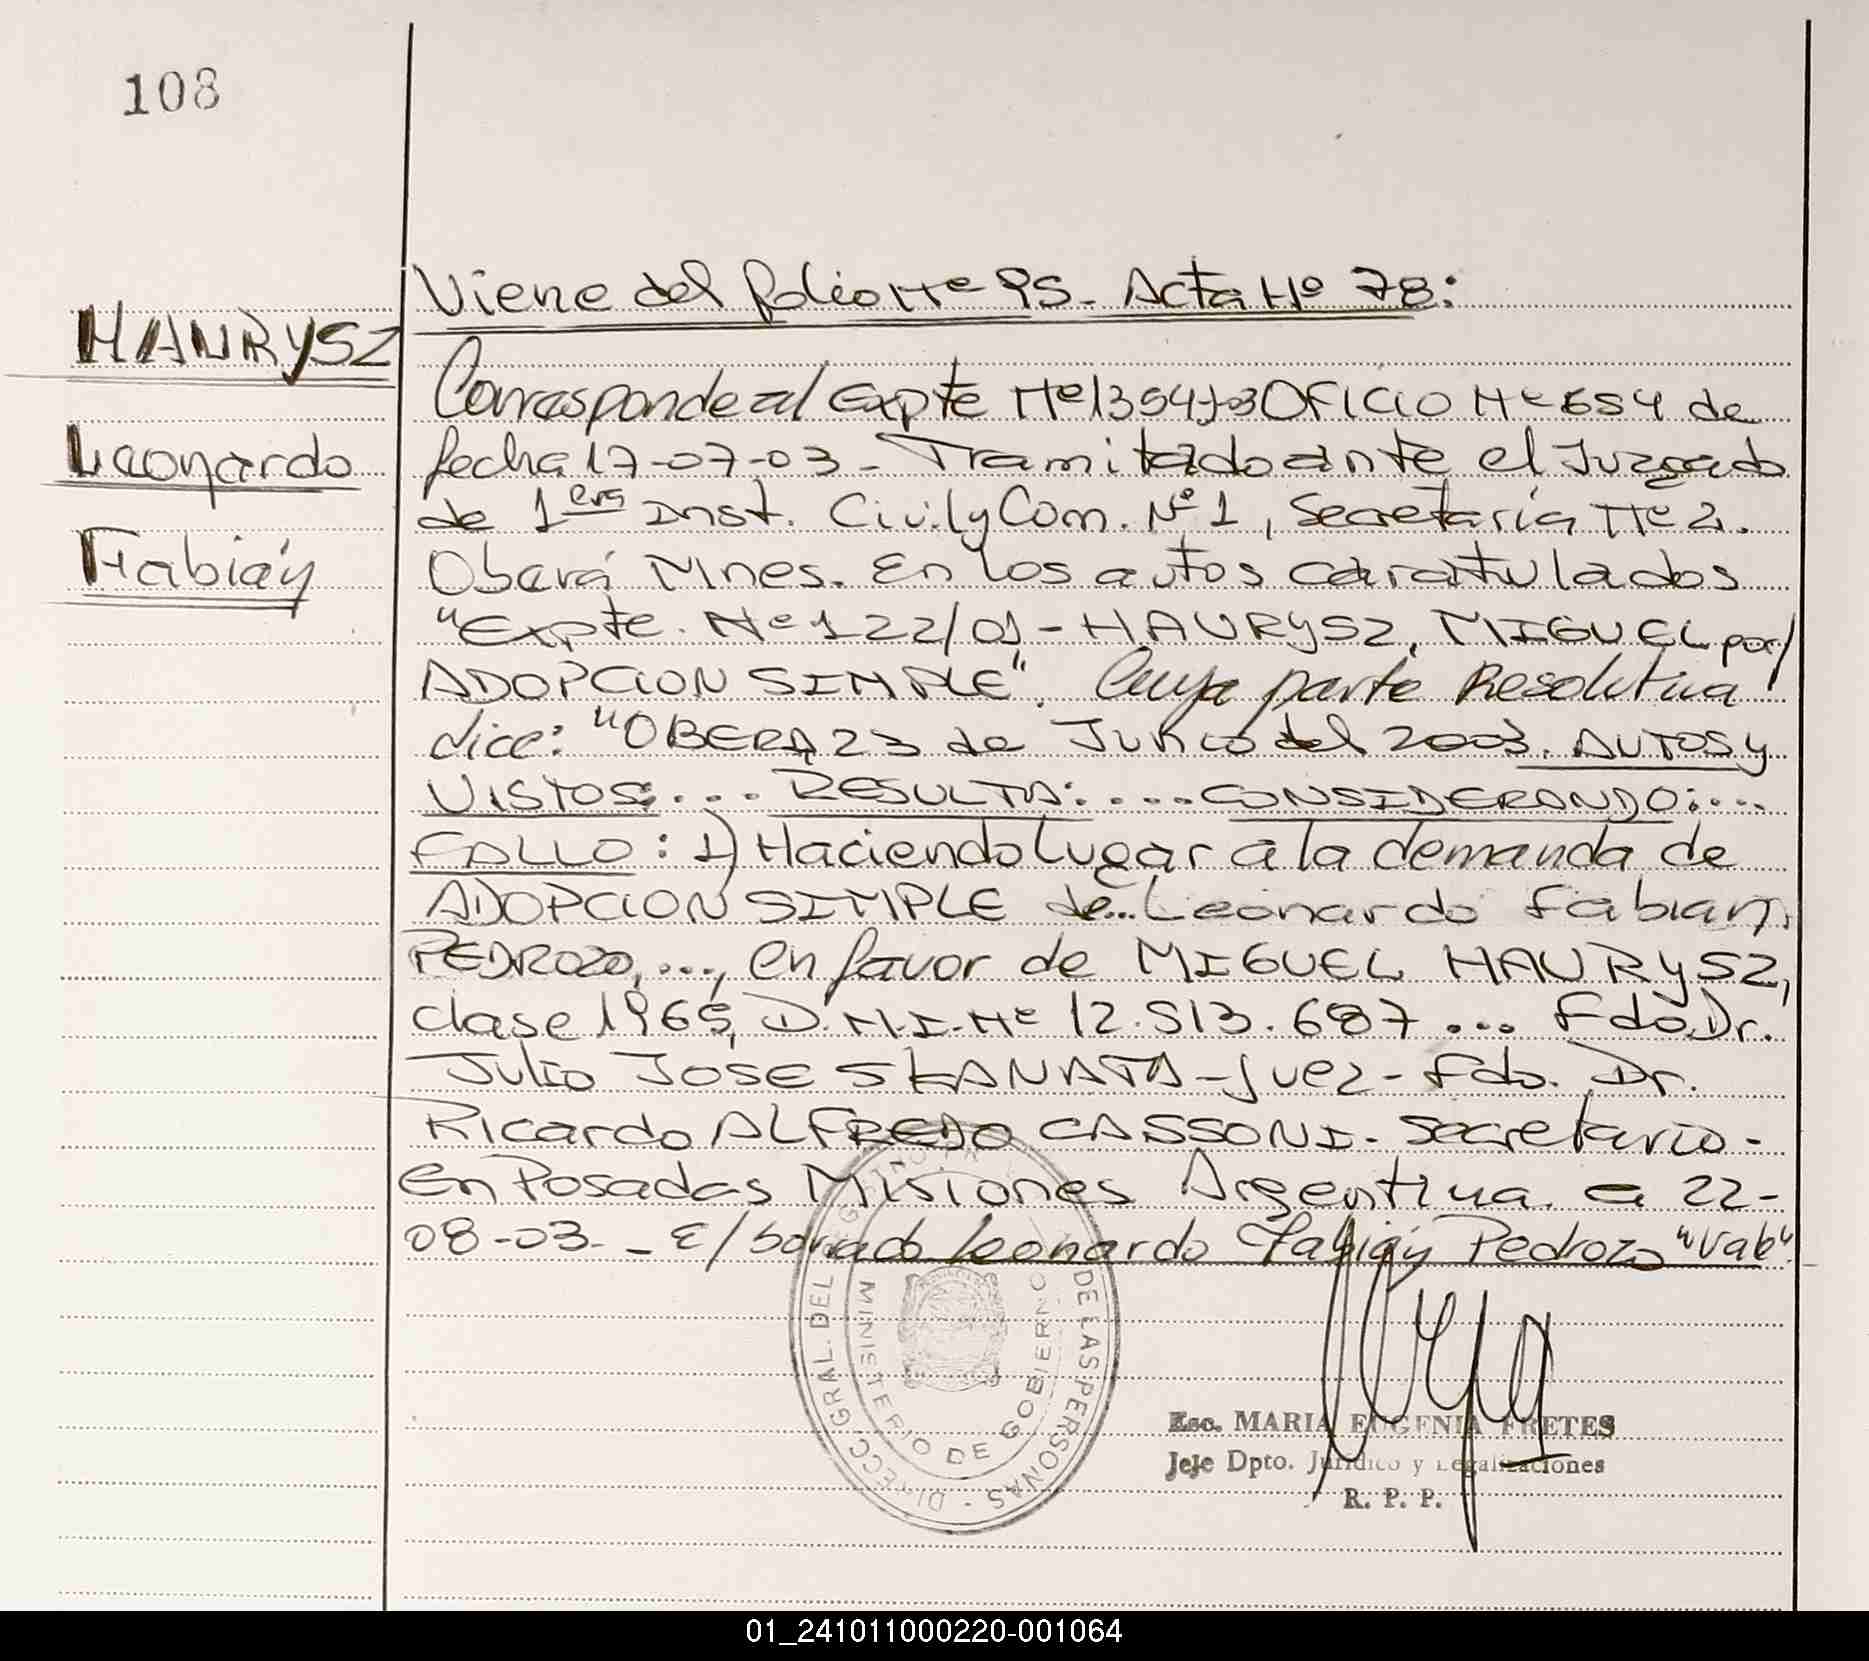 108
HAURYSZ
Leonardo
Fabián
Viene del folio Nº 95. Acta Nº 78:
Corresponde al Expte Nº 1354/03 OFICIO Nº 654 de
fecha 17-07-03- Tramitado ante el Juzgado
de 1era Inst. Civil y Com. Nº 1, Secretaría Nº 2.
Oberá Mnes. En los autos caratulados
"Expte. Nº 122/01 - HAURYSZ, MIGUEL por/
ADOPCION SIMPLE". Cuya parte Resolutiva
dice: "OBERA, 23 de Junio del 2003. AUTOS y
VISTOS:... RESULTA:....CONSIDERANDO:...
FALLO: 1) Haciendo lugar a la demanda de
ADOPCION SIMPLE de... Leonardo Fabian
PEDROZO,..., en favor de MIGUEL HAURYSZ,
clase 1965, D.N.I. Nº 12.513.687 ... Fdo. Dr.
Julio JOSE SKANATA - Juez - Fdo. Dr.
Ricardo ALFREDO CASSONI. Secretario -
En Posadas Misiones Argentina a 22-
08-03- - E/ borrado Leonardo Fabián Pedrozo "Vale"
DIRECC. GRAL. DEL DE LAS PERSONAS
MINISTERIO DE GOBIERNO
Esc. MARIA EUGENIA FRETES
Jefe Dpto. Jurídico y Legalizaciones
R. P. P.
01_241011000220-001064